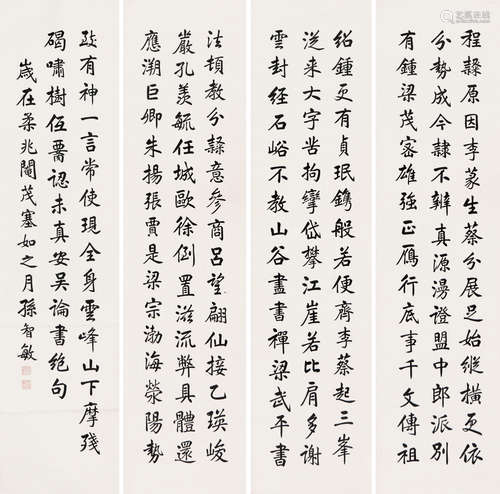 程隸原因李篆生蔡分展足始縱橫更依
分勢成今隸不辨真源漫證盟中郎派別
有鍾梁茂密雄強正雁行底事千文傳祖
紹鍾更有貞珉鐫般若便齊李蔡起三峯
從來大字苦拘攣岱攀江崖若比肩多謝
雲封經石峪不教山谷盡書禪梁武平書
法頓教分隸意參商呂望翩仙接乙瑛峻
嚴孔羨毓任城歐徐倒置滋流弊具體還
應溯巨卿朱揚張賈是梁宗渤海滎陽勢
跂有神一言常使現全身雲峰山下摩殘
碣嘯樹低罾認未真安吳論書絕句
歲在柔兆閹茂塞如之月孫智敏